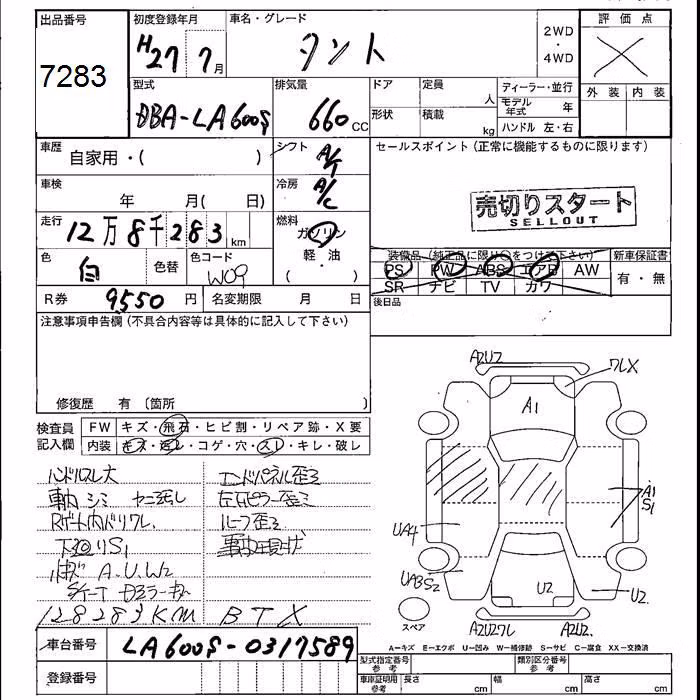 出品番号
7283
初度登録年月
H27 7月
車名・グレード
タント
2WD
・
4WD
評価点
外装 内装
型式
DBA-LA600S
排気量
660cc
ドア
定員
人
形状
積載
kg
ディーラー・並行
モデル年式 年
ハンドル 左・右
車歴
自家用・( )
シフト
A/T
セールスポイント(正常に機能するものに限ります)
売切りスタート
SELLOUT
車検
年 月( 日)
冷房
A/C
走行
12万8千283km
燃料
ガソリン
軽・油
( )
色
白
色替
色コード
W09
R券 9550円
名変期限 月 日
装備品(純正品に限り○をつけて下さい)
PS PW ABS エアB AW
SR ナビ TV カワ
新車保証書
有・無
後日品
注意事項申告欄(不具合内容等は具体的に記入して下さい)
修復歴 有(箇所 )
検査員記入欄
FW キズ・飛石・ヒビ割・リペア跡・X要
内装 キズ・汚レ・コゲ・穴・スレ・キレ・破レ
ハンドルスレ大
車内シミ ヤニ汚レ
Rゲート内ドリワレ
下廻りS1
A.U.W2
128283KM
エンドパネル歪ミ
左右ピラー歪ミ
ルーフ歪ミ
BTX
A2U2
ワレX
A1
A1
S1
UA4
UA3S2
U2
U2
スペア
A2U2ワレ
A2U2
A=キズ E=エクボ U=凹み W=補修跡 S=サビ C=腐食 XX=交換済
車台番号
LA600S-0317589
登録番号
型式指定番号
参考
類別区分番号
参考
車庫証明用
参考
長さ cm
幅 cm
高さ cm